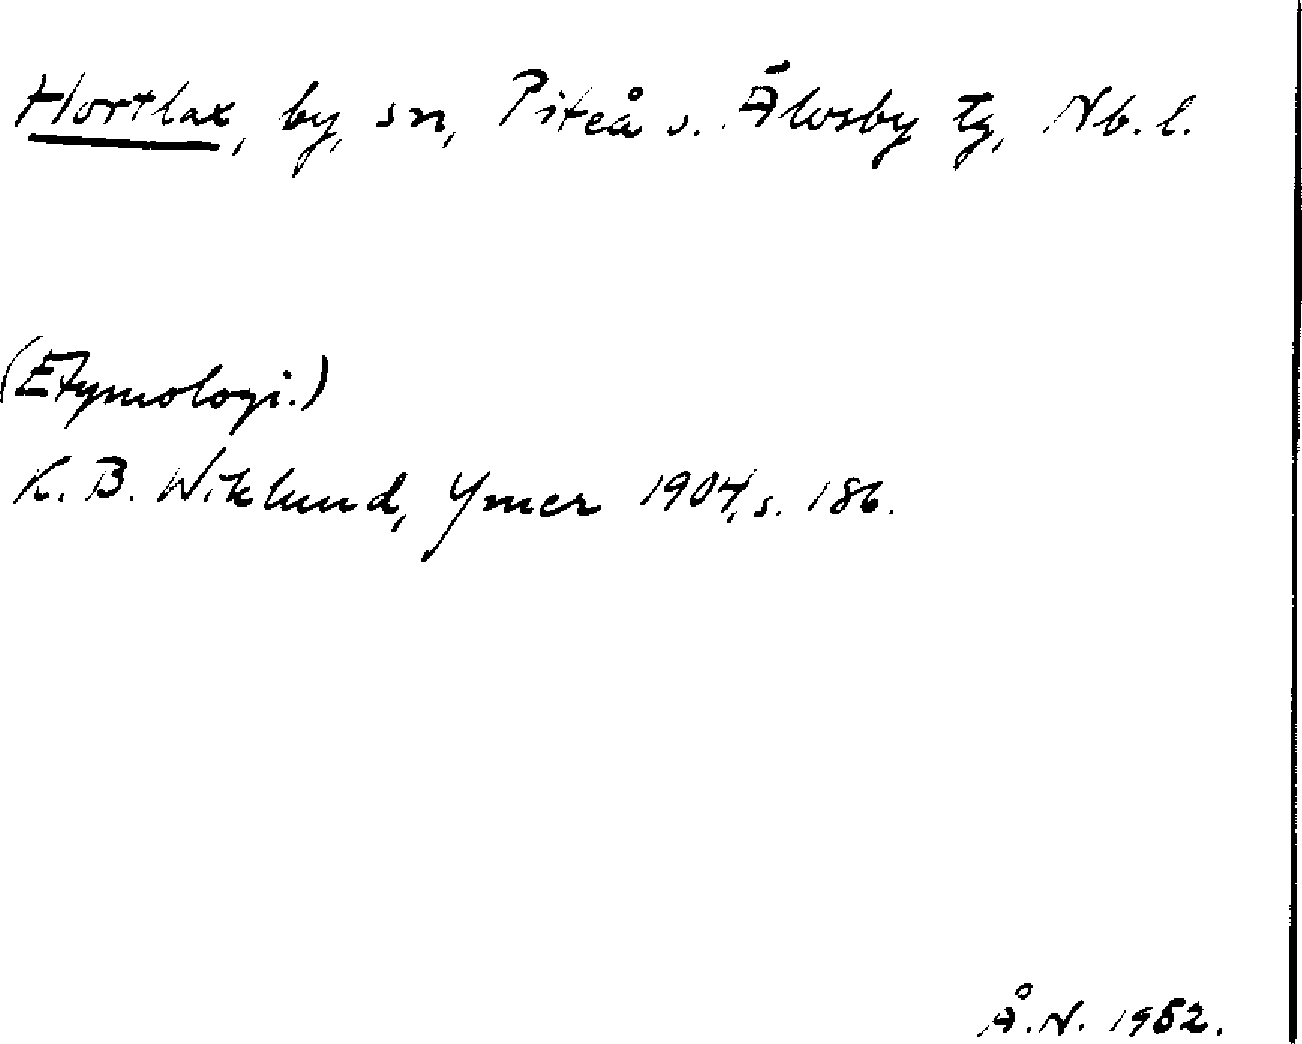 Hortlax, by, sn, Piteå o. Älvsby tg, Nb. l.
(Etymologi.)
K. B. Wiklund, Ymer 1904, s. 186.
Å. N. 1952.